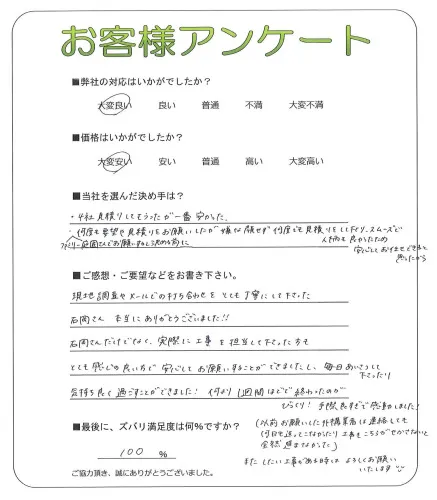 お客様アンケート
■弊社の対応はいかがでしたか？
大変良い 良い 普通 不満 大変不満
■価格はいかがでしたか？
大変安い 安い 普通 高い 大変高い
■当社を選んだ決め手は？
・4社見積りしてもらったが一番安かった。
・何度も要望や見積りをお願いしたが嫌な顔せず何度でも見積りをして下さり、スムーズで
人柄も良かったため
安心しておまかせできると
思ったから
■ご感想・ご要望などをお書き下さい。
現地調査やメールでの打ち合わせをとても丁寧にして下さった
石岡さん 本当にありがとうございました!!
石岡さんだけでなく、実際に工事を担当して下さった方も
とても感じの良い方で安心してお願いすることができましたし、毎日あいさつして
下さったり
気持ち良く過ごすことができました! 何より1週間ほどで終わったのが
びっくり! 手際良すぎで感動しました!
■最後に、ズバリ満足度は何％ですか？
100 %
(以前お願いした外構業者は連絡しても
何日も返ってこなかったり 工事もこちらがせかさないと
全然進まなかった)
またしたい工事がある時はよろしくお願い
いたします
ご協力頂き、誠にありがとうございました。